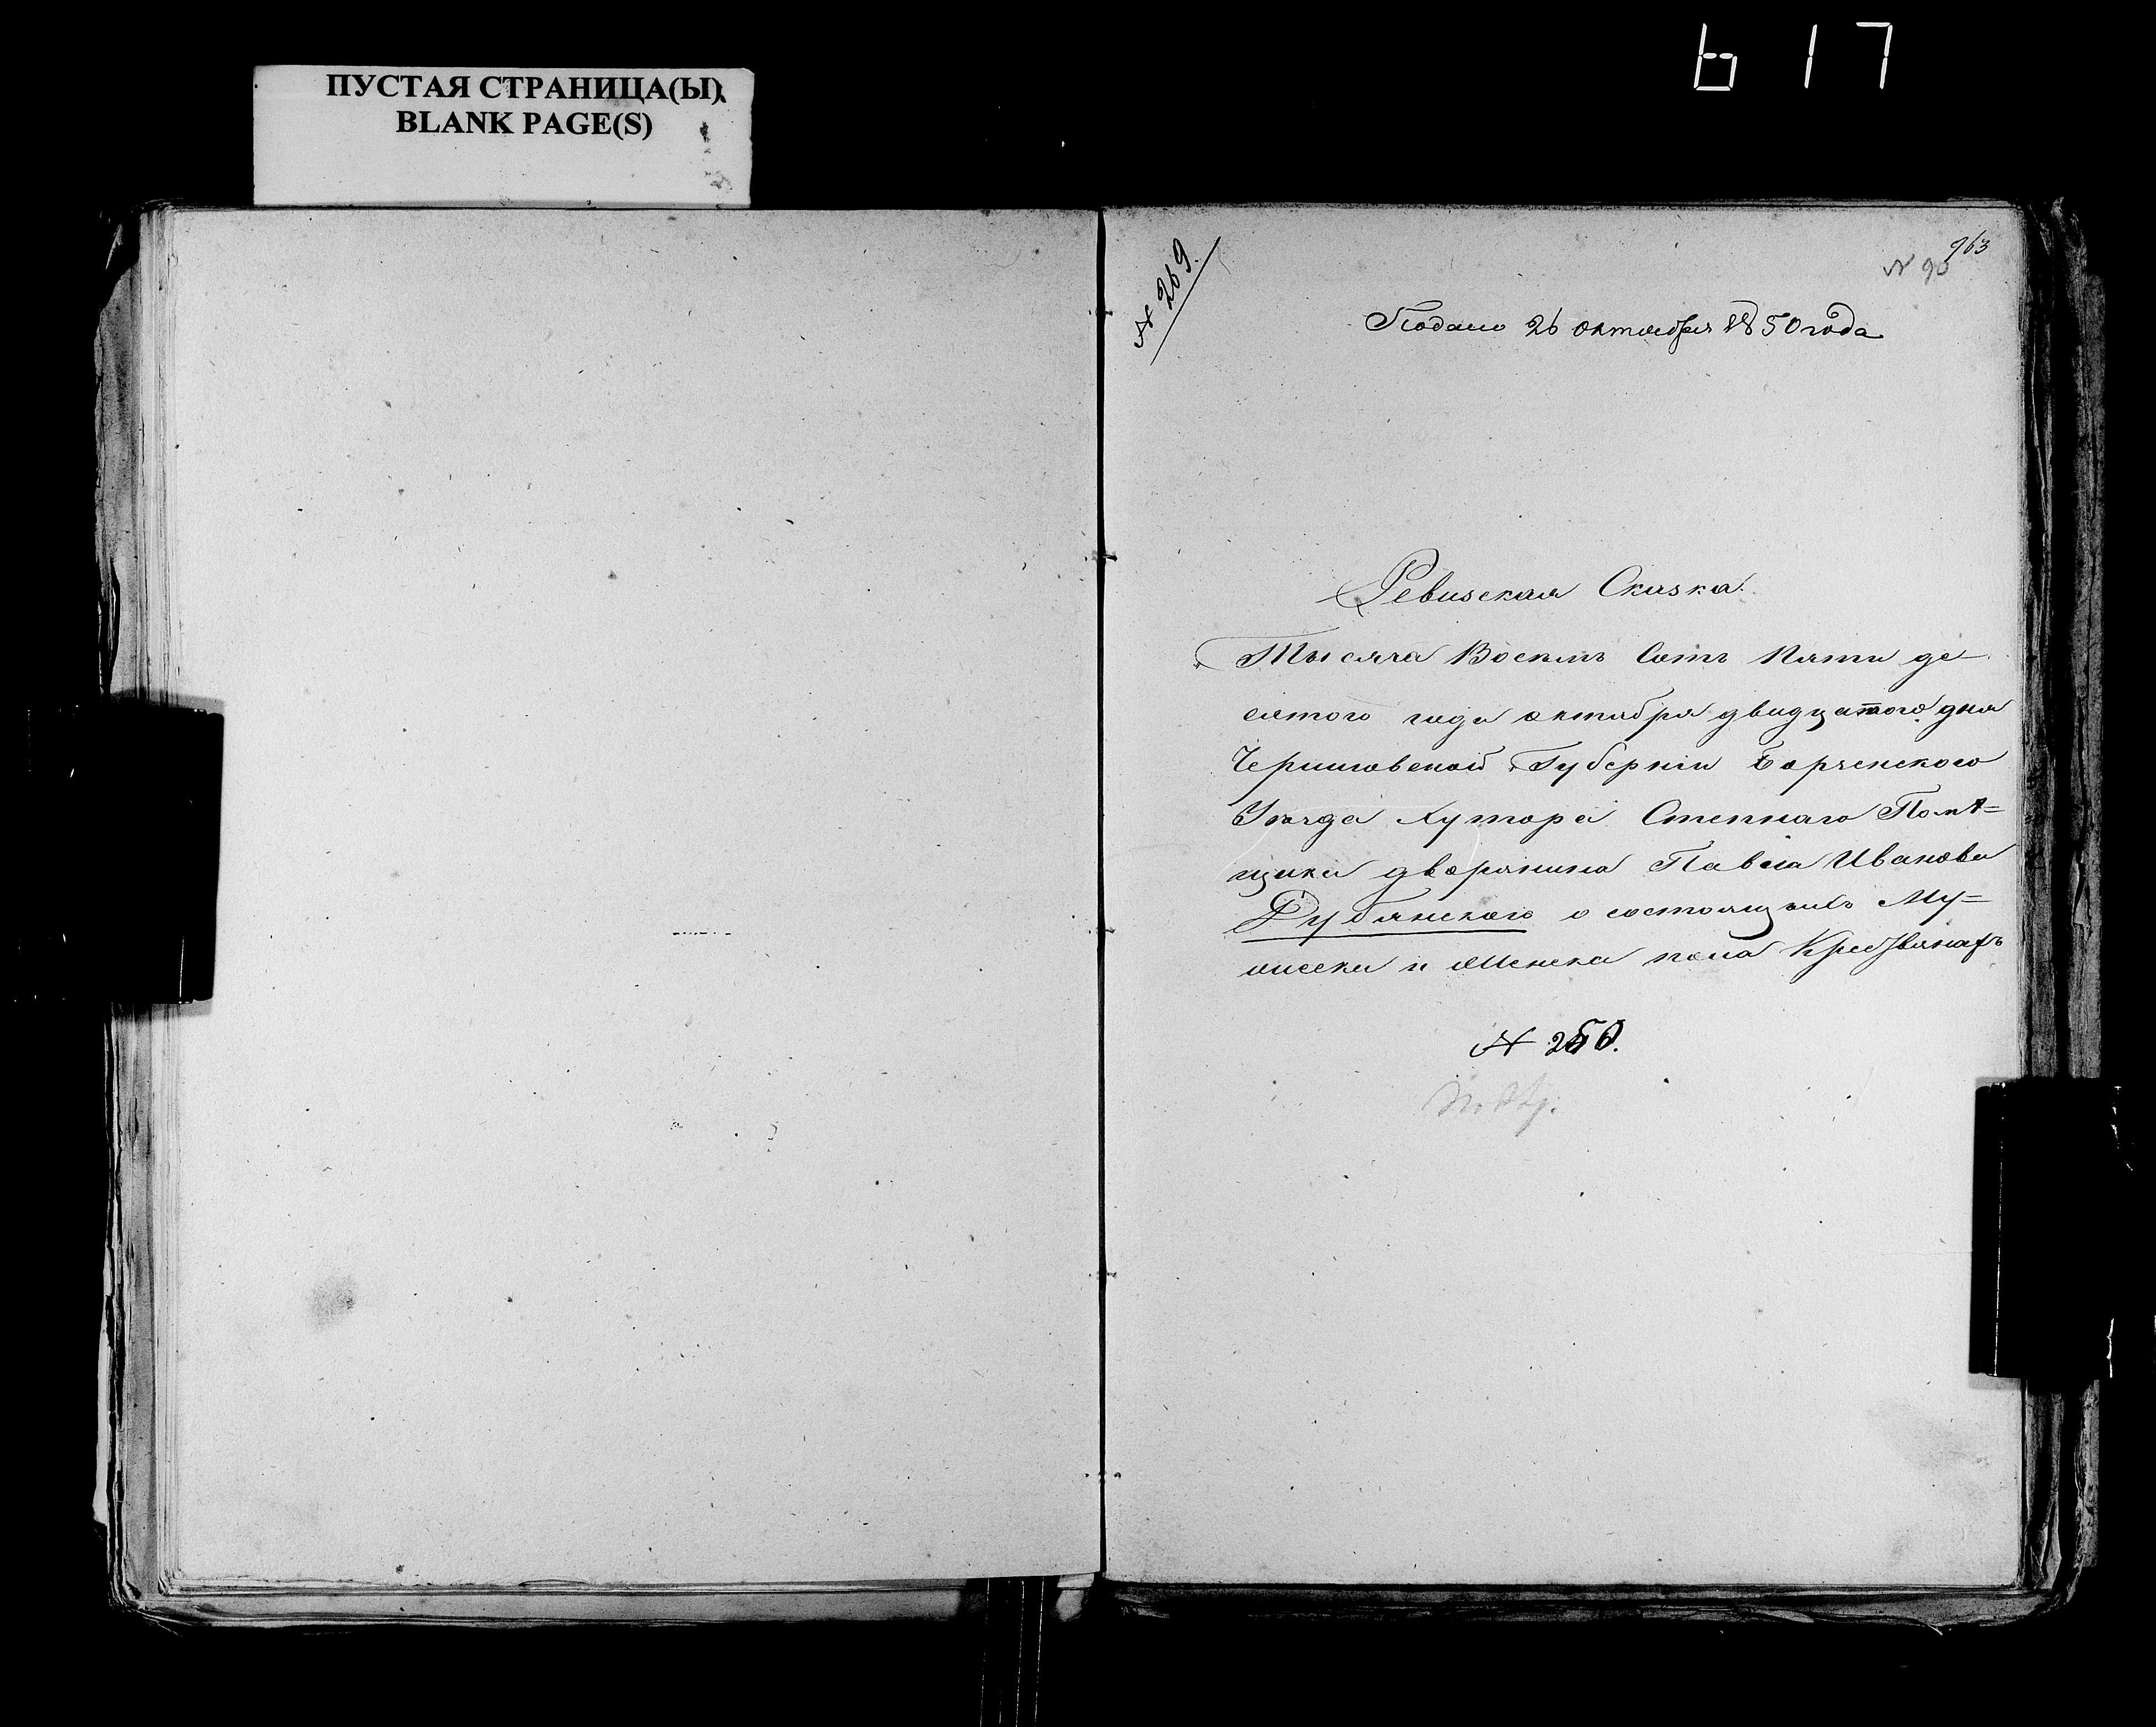 617
ПУСТАЯ СТРАНИЦА(Ы)
BLANK PAGE(S)
N 269.
963
N 90
Подано 26 октября 1850 года
Ревизская Сказка.
Тысяча Восемь Сотъ Пяти де-
сятого года октября двадцатого дня
Черниговской Губернии Борзенского
Уезда Хутора Степнаго Помѣ=
щика дворянина Павла Иванова
Дубянского о состоящихъ Му=
жеска и Женска пола Крестьянахъ
N 250.